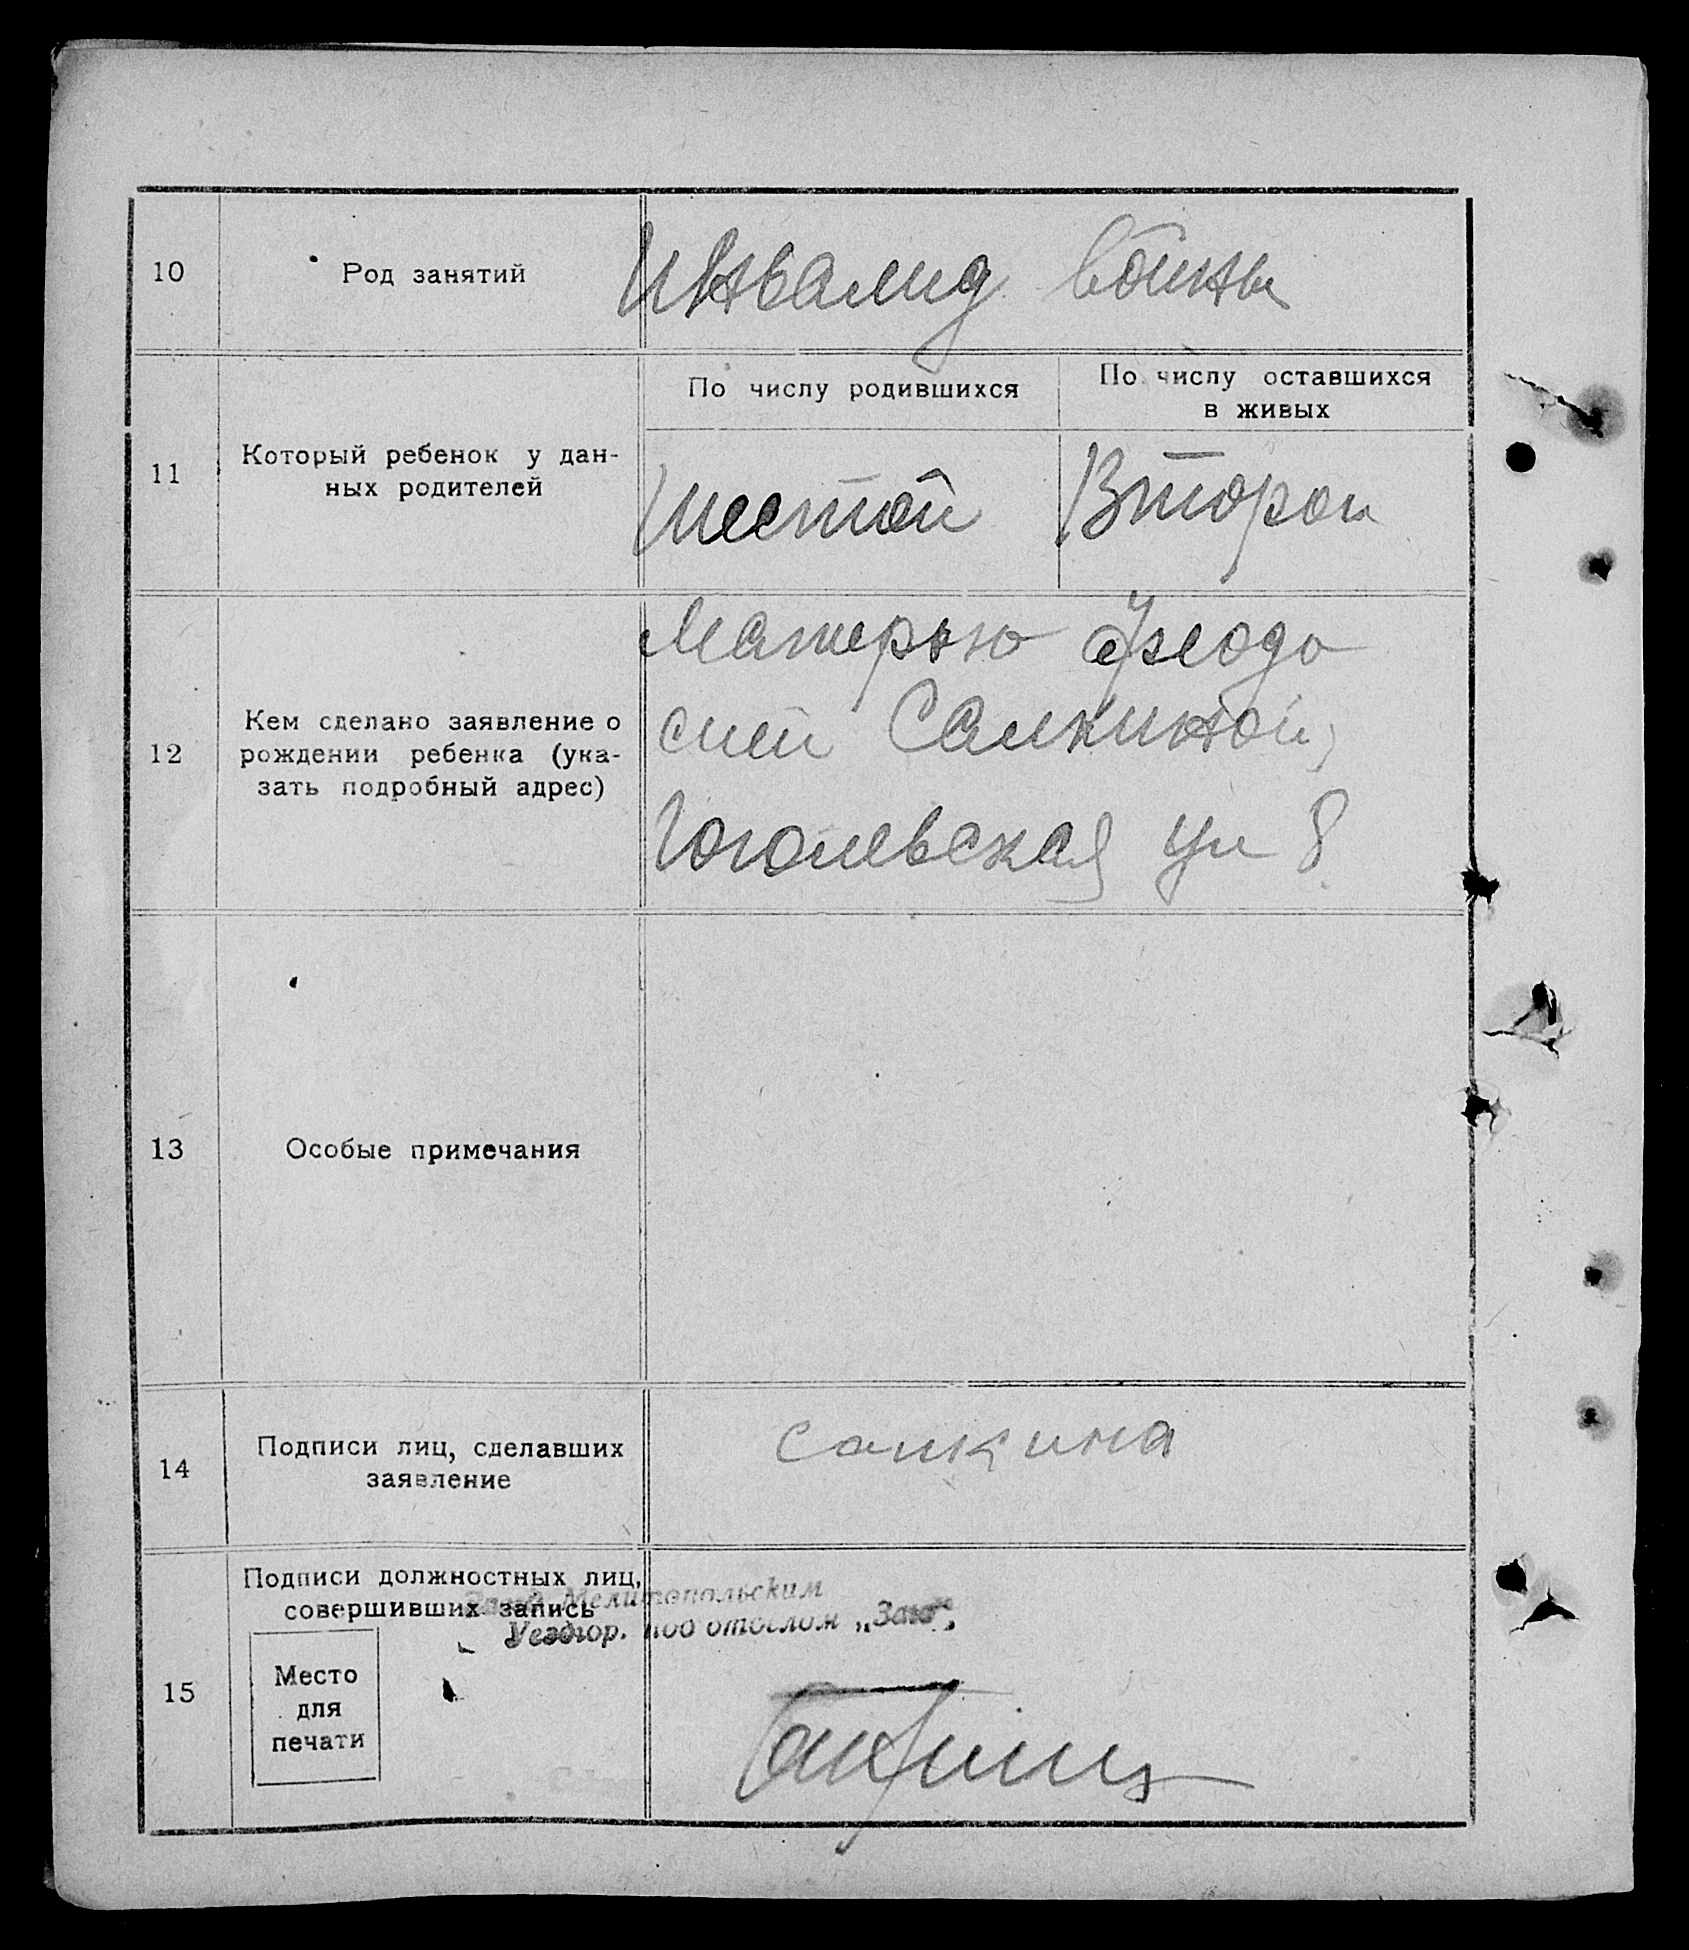 10
Род занятий
Инвалид войны
11
Который ребенок у дан-
ных родителей
По числу родившихся
По числу оставшихся
в живых
Шестой
Второй
12
Кем сделано заявление о
рождении ребенка (ука-
зать подробный адрес)
Матерью Феодо
сией Салкиной,
Гоголевская ул 8
13
Особые примечания
14
Подписи лиц, сделавших
заявление
Салкина
15
Подписи должностных лиц,
совершивших запись
Мелитопольским
Уездгор. под отделом „Загс“.
Место
для
печати